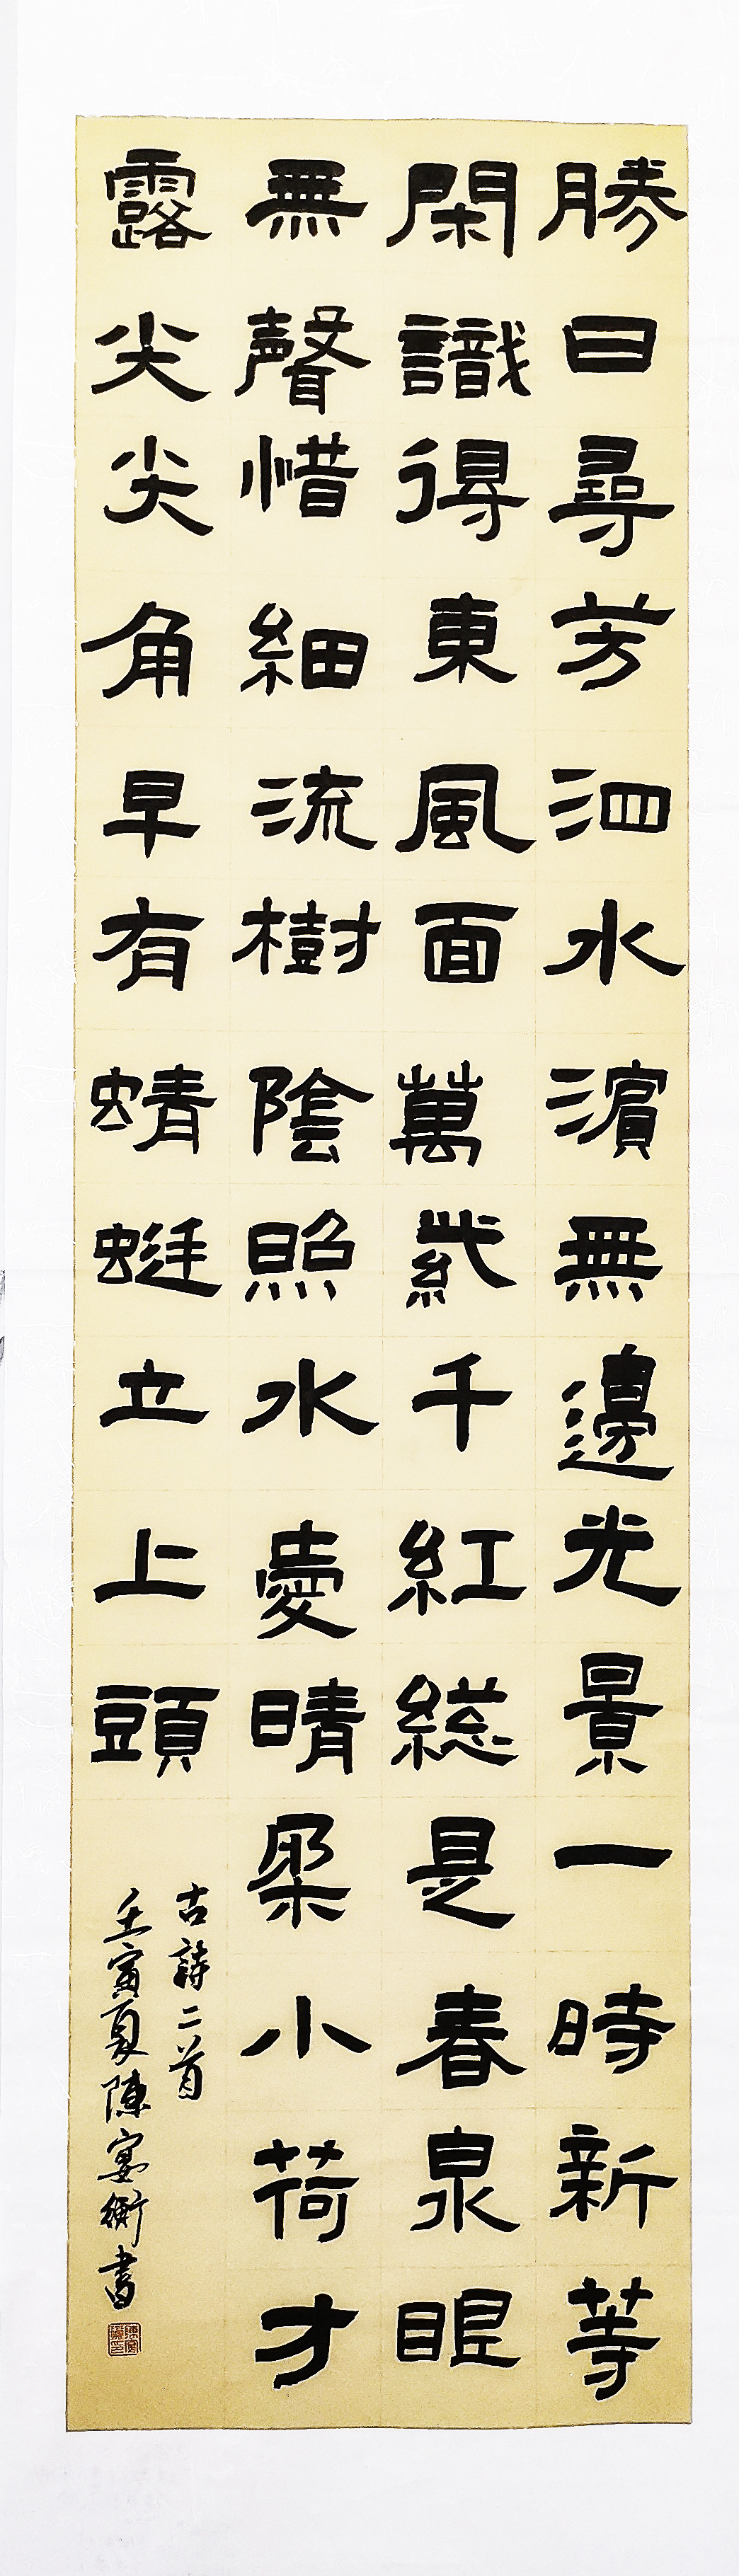 勝日尋芳泗水濱無邊光景一時新等
閑識得東風面萬紫千紅総是春泉眼
無聲惜細流樹陰照水愛晴柔小荷才
露尖尖角早有蜻蜓立上頭
古詩二首
壬寅夏陳宴衡書